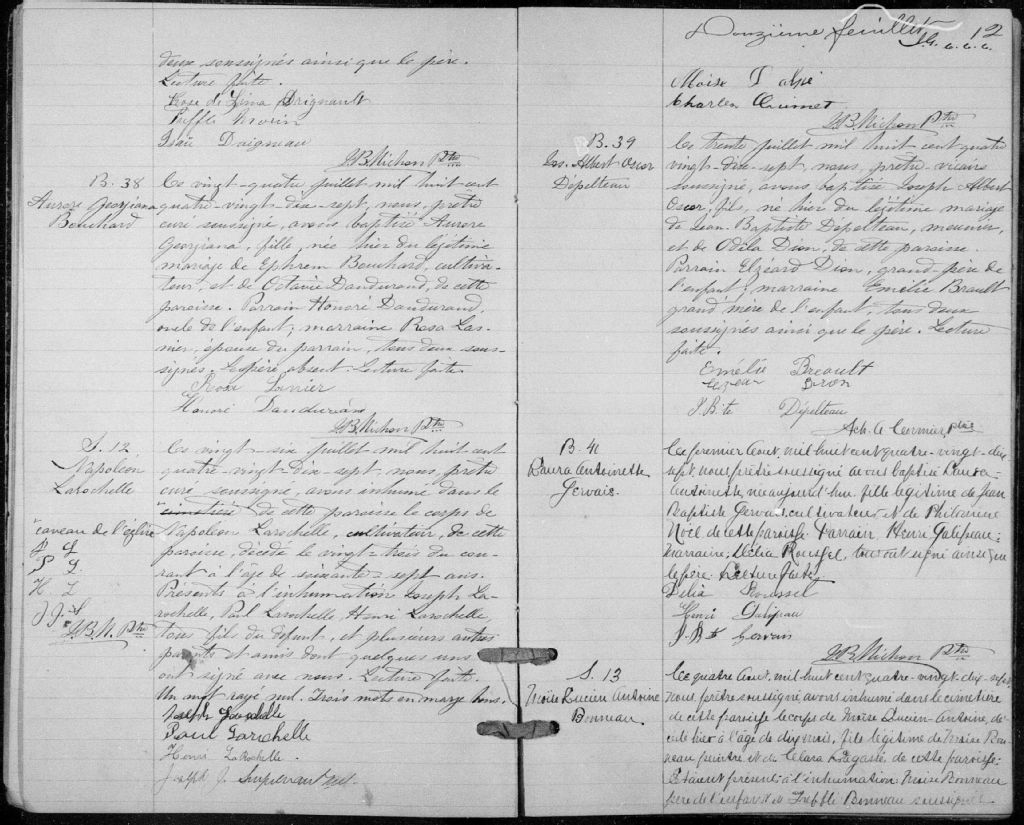 deux soussignés ainsi que le père.
Lecture faite.
Rose de Lima Brignault
Treffle Morin
Daigneau
J.B. Michon Ptre
B. 38
Aurore Georgiana
Bouchard
Ce vingt-quatre juillet mil huit cent
quatre-vingt-dix-sept, nous, prêtre
curé soussigné, avons baptisé Aurore
Georgiana, fille, née hier du légitime
mariage de Ephrem Bouchard, cultiva-
teur, et de Octavie Dandurand, de cette
paroisse. Parrain Honoré Dandurand,
oncle de l'enfant; marraine Rosa Las-
nier, épouse du parrain, tous deux sous-
signés. Le père absent. Lecture faite.
Rosa Lanier
Honoré Dandurand
J.B. Michon Ptre
S. 12
Napoléon
Larochelle
"caveau de l'église
P L
S G
H L
J J S
J.B.M. Ptre
Ce vingt-six juillet mil huit cent
quatre-vingt-dix-sept, nous, prêtre
curé soussigné, avons inhumé dans le
cimetière de cette paroisse le corps de
Napoléon Larochelle, cultivateur, de cette
paroisse, décédé le vingt-trois du cou-
rant à l'âge de soixante-sept ans.
Présents à l'inhumation Joseph La-
rochelle, Paul Larochelle, Henri Larochelle,
tous fils du défunt, et plusieurs autres
parents et amis dont quelques uns
ont signé avec nous. Lecture faite.
Un mot rayé nul. Trois mots en marge bons.
Joseph Larochelle
Paul Larochelle
Henri LaRochelle
Joseph J.
Douzième feuillet 12
Moise
Charles Ouimet
J.B. Michon Ptre
B. 39
Jos. Albert Oscar
Dépelteau
Ce trente juillet mil huit cent quatre
vingt-dix-sept, nous, prêtre vicaire
soussigné, avons baptisé Joseph Albert
Oscar, fils, né hier du légitime mariage
de Jean Baptiste Dépelteau, meunier,
et de Odila Dion, de cette paroisse.
Parrain Elzéard Dion, grand-père de
l'enfant; marraine Emélie Brault
grand'mère de l'enfant, tous deux
soussignés ainsi que le père. Lecture
faite.
Emélie Breault
Dion
J. Bte Dépelteau
Ach. A. Cormier, ptre
B. 40
Laura Antoinette
Gervais.
Ce premier Aout, mil huit cent quatre-vingt-dix
sept nous prêtre soussigné avons baptisé Laura-
Antoinette, née aujourd'hui, fille légitime de Jean
Baptiste Gervais, cultivateur, et de Philomène
Noël de cette paroisse. Parrain Henri Galipeau:
marraine, Délia Roussel, qui ont signé ainsi que
le père. Lecture faite.
Délia Roussel
Henri Galipeau
J. Bte Gervais
J.B. Michon Ptre
S. 13
Moïse Lucien Antoine
Bonneau.
Ce quatre Aout, mil huit cent quatre-vingt-dix-sept
nous prêtre soussigné, avons inhumé dans le cimetière
de cette paroisse le corps de Moïse Lucien-Antoine, dé-
cédé hier à l'âge de dix mois, fils légitime de Moïse Bon-
neau peintre et de Clara Lagassé de cette paroisse.
Etaient présents à l'inhumation: Moïse Bonneau
père de l'enfant et Treffle Bonneau soussignés